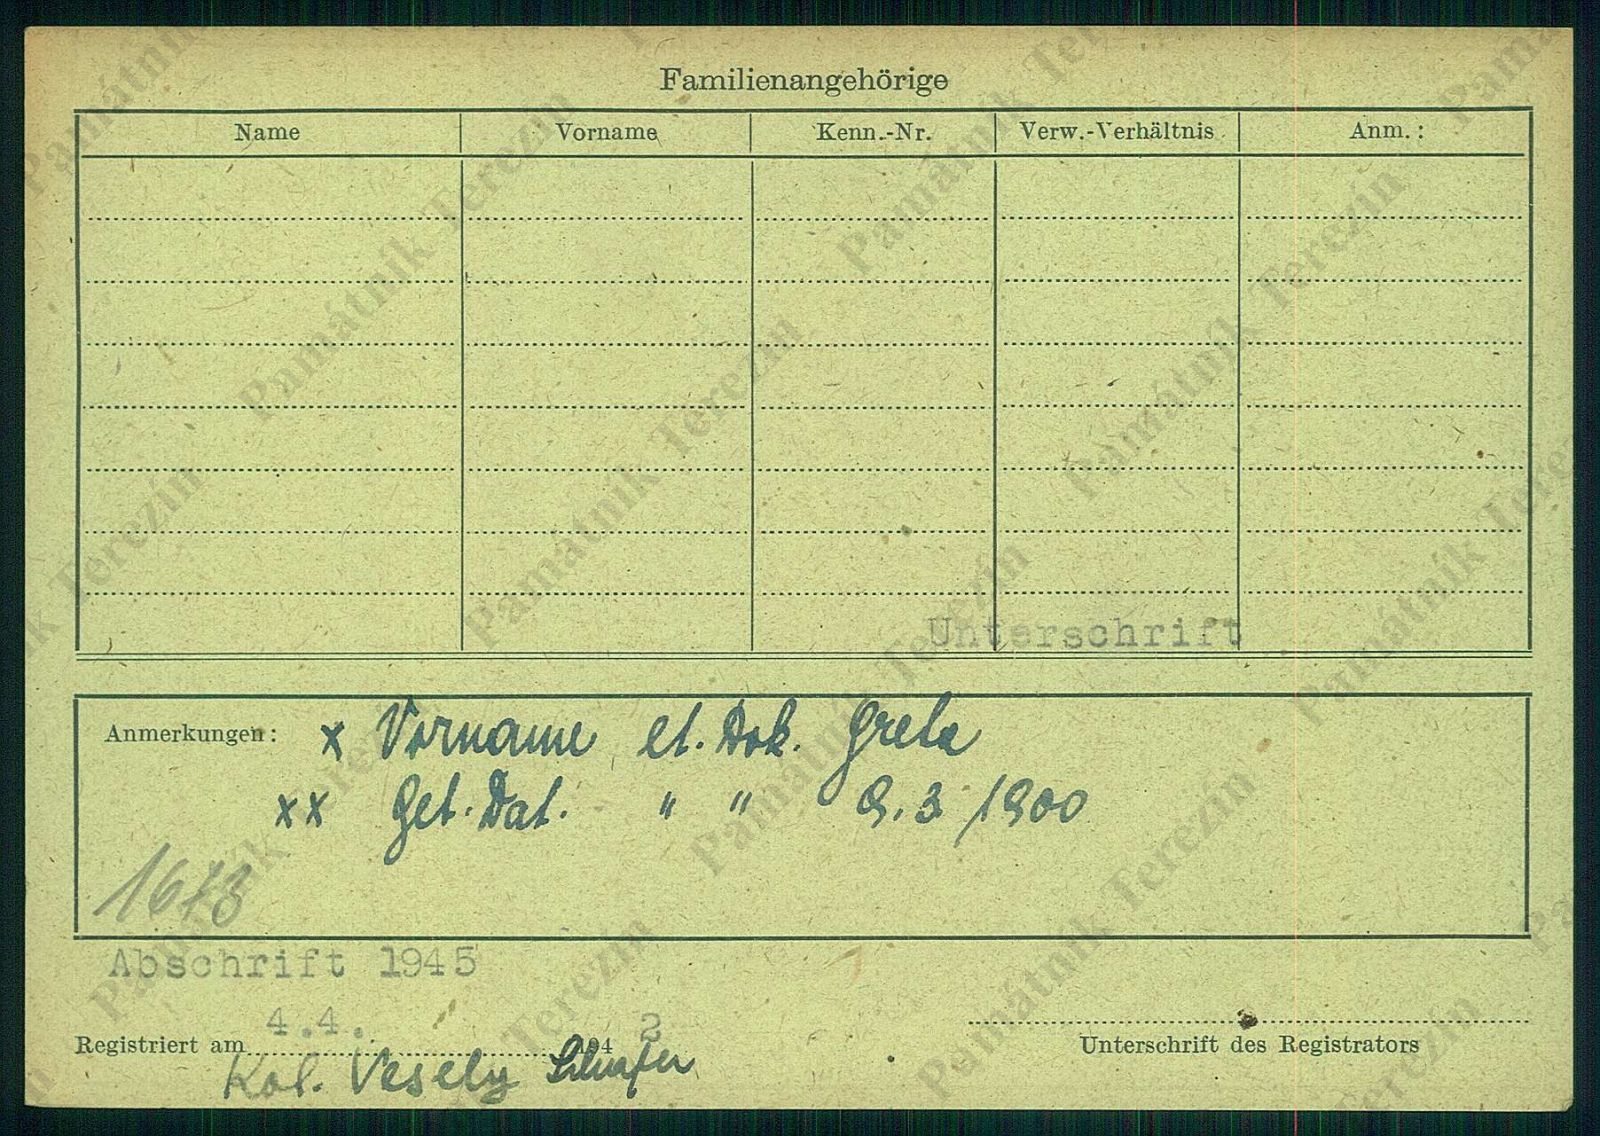 Familienangehörige
Name Vorname Kenn.-Nr. Verw.-Verhältnis Anm.:
Unterschrift
Anmerkungen: x Vorname lt. Dok. Greta
xx Geb. Dat. " " 9.3.1900
1673
Abschrift 1945
4.4.
Registriert am 194 2
Kol. Vesely
Unterschrift des Registrators
Památník Terezín